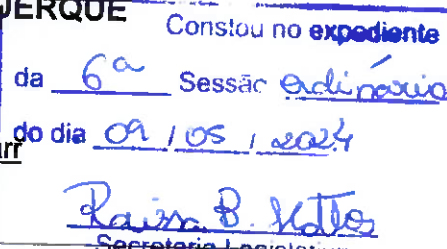 JERQUE
Constou no expediente
da 6ª Sessão ordinária
do dia 09 / 05 / 2024
arr
Raissa B. Mattos
Secretaria Legislativa